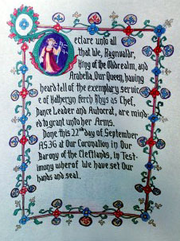 Declare unto all
that We, Ragnvaldr,
King of the Midrealm, and
Arabella, Our Queen, having
heard tell of the exemplary service
of Katheryn ferch Rhys as Chef,
Dance Leader and Autocrat, are mind-
ed to grant unto her Arms.
Done this 22nd day of September,
A.S. 36 at Our Coronation in Our
Barony of the Cleftlands, in Test-
imony whereof We have set Our
hands and seal.